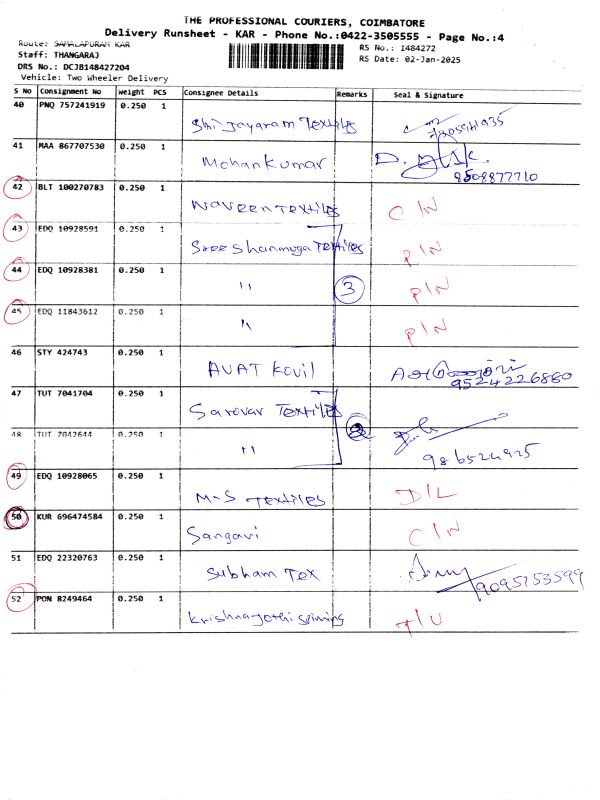 THE PROFESSIONAL COURIERS, COIMBATORE
Delivery Runsheet - KAR - Phone No.:0422-3505555 - Page No.:4
Route: SAMALAPURAM KAR
RS No.: 1484272
Staff: THANGARAJ
RS Date: 02-Jan-2025
DRS No.: DCJB148427204
Vehicle: Two Wheeler Delivery
S No Consignment No Weight PCS Consignee Details Remarks Seal & Signature
40 PNQ 757241919 0.250 1 Shri Jayaram Textiles
41 MAA 867707530 0.250 1 Mohankumar
8508877710
42 BLT 100270783 0.250 1 Naveen Textiles C/N
43 EDQ 10928591 0.250 1 Sree Shanmuga Textiles P/N
44 EDQ 10928381 0.250 1 " 3 P/N
45 EDQ 11843612 0.250 1 " P/N
46 STY 424743 0.250 1 AVAT Kovil
9524226860
47 TUT 7041704 0.250 1 Sarovar Textiles
48 TUT 7042644 0.250 1 " 2
986524925
49 EDQ 10928065 0.250 1 M-S Textiles D/L
50 KUR 696474584 0.250 1 Sangavi C/N
51 EDQ 22320763 0.250 1 Subham Tex
9095753599
52 PON 8249464 0.250 1 Krishnajothi Spinning T/U